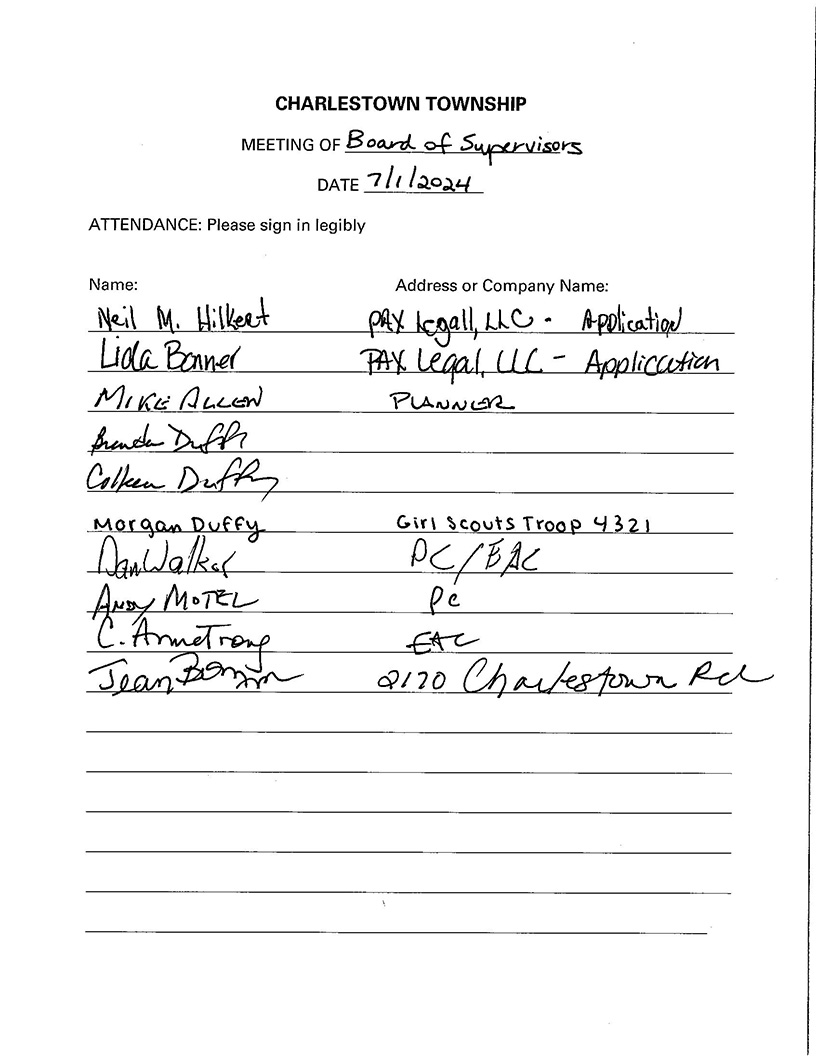 CHARLESTOWN TOWNSHIP
MEETING OF Board of Supervisors
DATE 7/1/2024
ATTENDANCE: Please sign in legibly
Name: Address or Company Name:
Neil M. Hilkert PAX Legall, LLC - Application
Lida Bonner PAX Legal, LLC - Application
MIKE ALLEN PLANNER
Brenda Duffy
Colleen Duffy
Morgan Duffy Girl Scouts Troop 4321
Dan Walker PC/EAC
ANDY MOTEL PC
C. Armstrong EAC
Jean 2170 Charlestown Rd